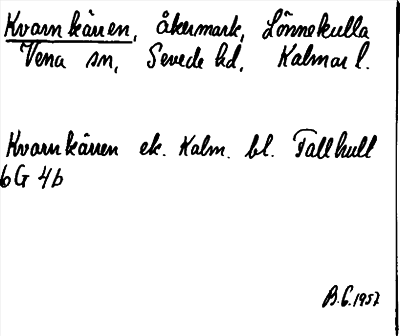 Kvarnkärren, åkermark, Lönnekulla
Vena sn, Sevede hd, Kalmar l.
Kvarnkärren ek. Kalm. bl. Fallhult
6G 4b
B.G. 1957